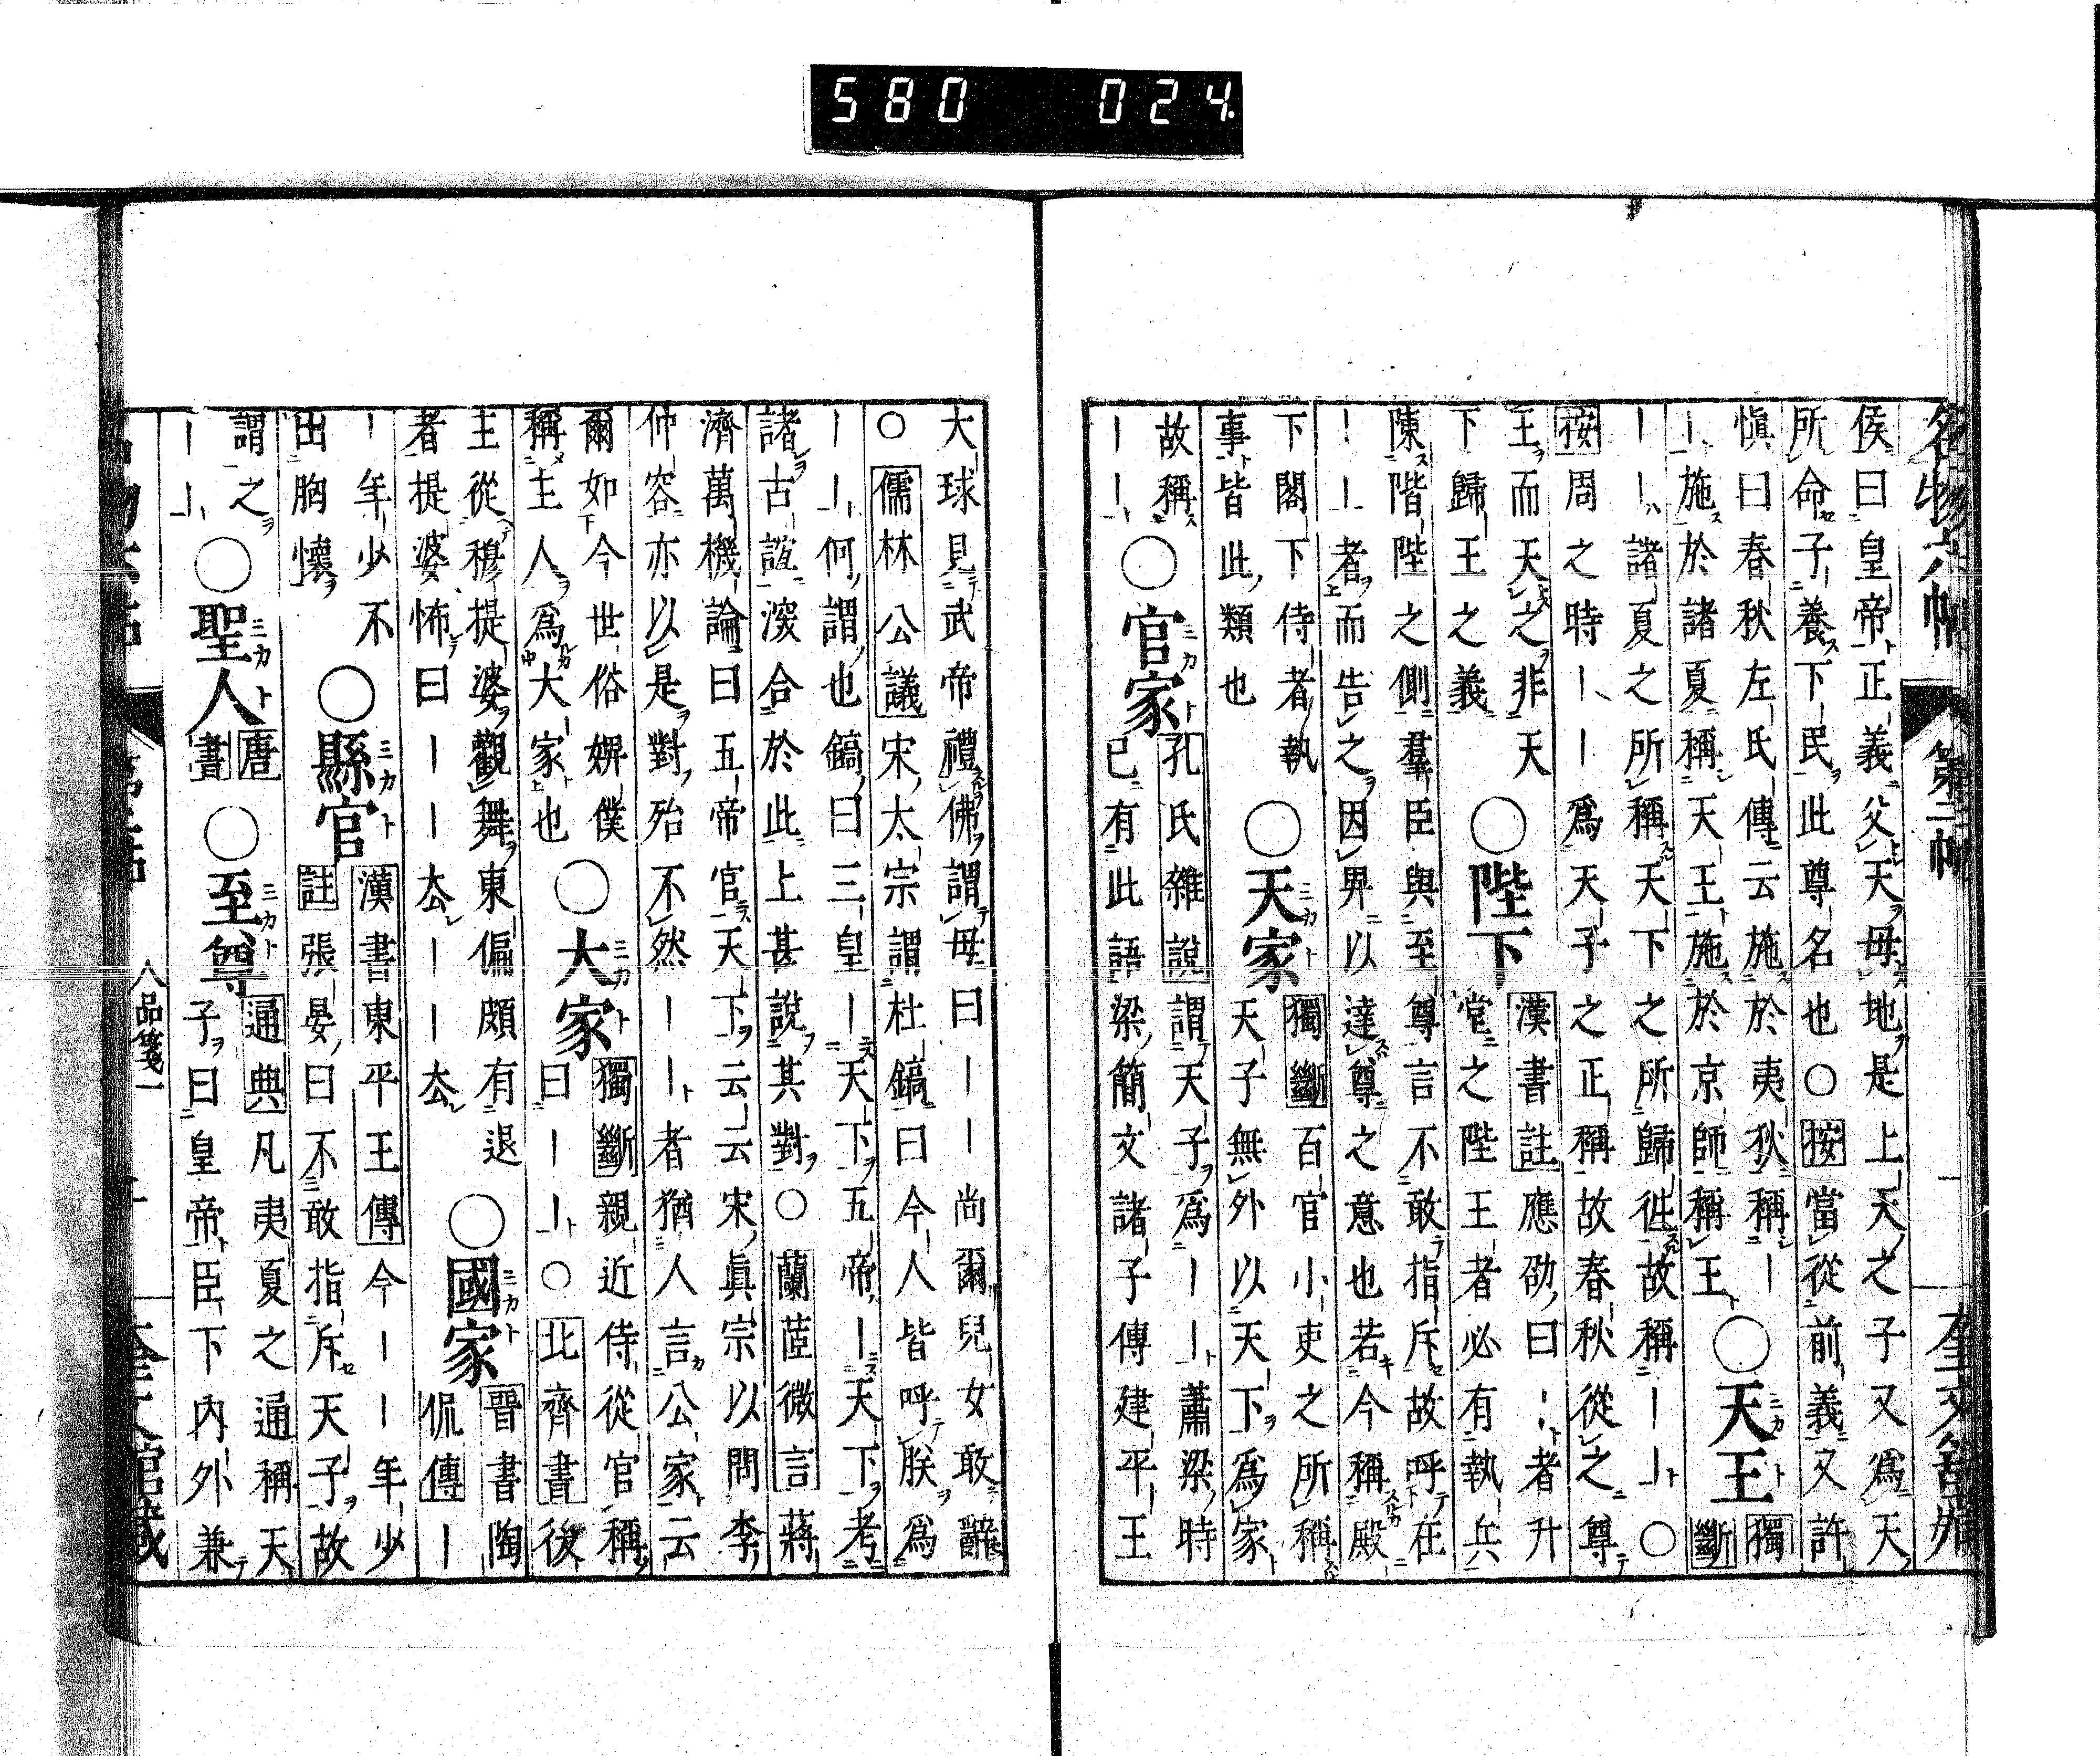 580 024
名物六帖 第二帖 一 奎文舘藏
侯曰皇帝正義父天母地是上天之子又爲天
所命子養下民此尊名也○按當從前義又許
愼曰春秋左氏傳云施於夷狄稱丨
丨施於諸夏稱天王施於京師稱王
○天王
獨斷
丨丨諸夏之所稱天下之所歸徃故稱丨丨○
按周之時丨丨爲天子之正稱故春秋從之尊
王而天之非天
下歸王之義
○陛下
漢書註應劭曰丨丨者升
堂之陛王者必有執兵
陳階陛之側羣臣與至尊言不敢指斥故呼在
丨丨者而告之因卑以達尊之意也若今稱殿
下閤下侍者執
事皆此類也
○天家
獨斷百官小吏之所稱
天子無外以天下爲家
故稱
丨丨
○官家
孔氏雜說謂天子爲丨丨蕭梁時
已有此語梁簡文諸子傳建平王
大球見武帝禮佛謂母曰丨丨尚爾兒女敢辭
○儒林公議宋太宗謂杜鎬曰今人皆呼朕爲
丨丨何謂也鎬曰三皇丨天下五帝丨天下考
諸古誼深合於此上甚說其對○蘭微言蔣
濟萬機論曰五帝官天下云云宋眞宗以問李
仲容亦以是對殆不然丨丨者猶人言公家云
爾如今世俗婢僕
稱主人爲大家也
○大家
獨斷親近侍從官稱
曰丨丨○北齊書後
主從穆提婆觀舞東偏頗有退
者提婆怖曰丨丨厺丨丨厺
○國家
晉書陶
侃傳丨
丨年少不
出胸懷
○縣官
漢書東平王傳今丨丨年少
註張晏曰不敢指斥天子故
謂之
丨丨
○聖人
唐書
○至尊
通典凡夷夏之通稱天
子曰皇帝臣下內外兼
人品箋一